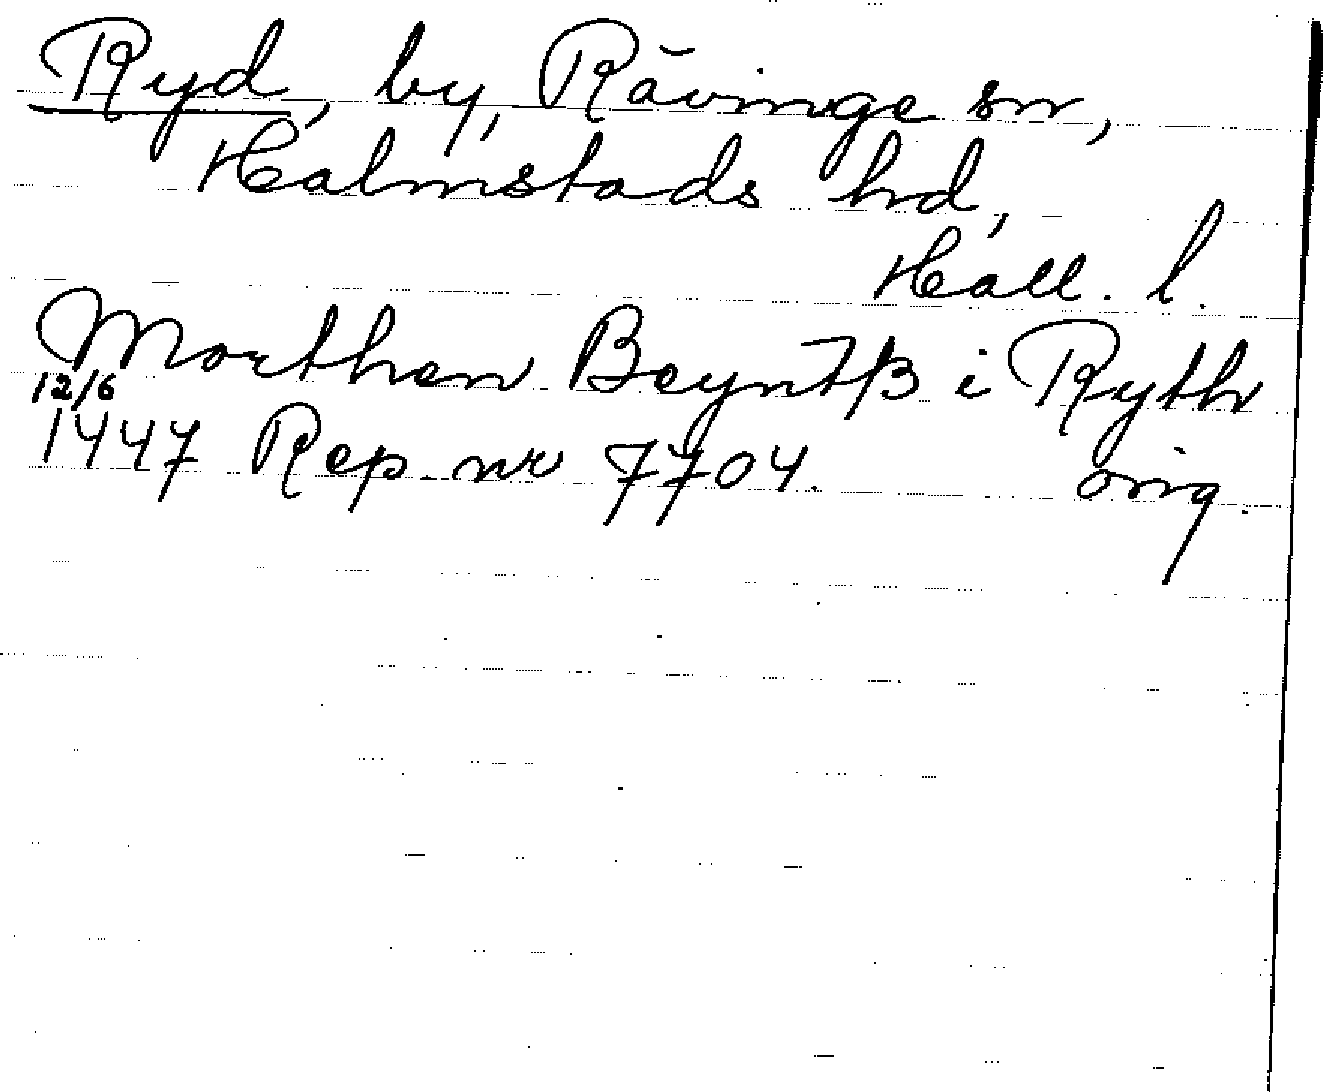 Ryd, by, Rävinge sn,
Halmstads hd,
Hall. l.
Morthen Beyntß i Ryth
12/6
1447 Rep. nr 7704. orig.